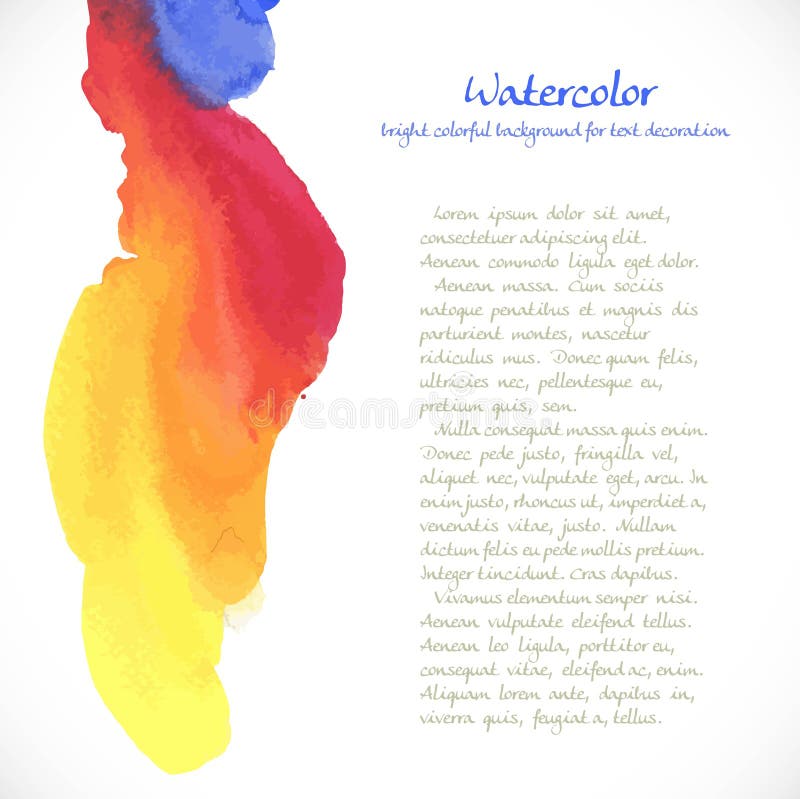 Watercolor
bright colorful background for text decoration
Lorem ipsum dolor sit amet,
consectetuer adipiscing elit.
Aenean commodo ligula eget dolor.
Aenean massa. Cum sociis
natoque penatibus et magnis dis
parturient montes, nascetur
ridiculus mus. Donec quam felis,
ultricies nec, pellentesque eu,
pretium quis, sem.
Nulla consequat massa quis enim.
Donec pede justo, fringilla vel,
aliquet nec, vulputate eget, arcu. In
enim justo, rhoncus ut, imperdiet a,
venenatis vitae, justo. Nullam
dictum felis eu pede mollis pretium.
Integer tincidunt. Cras dapibus.
Vivamus elementum semper nisi.
Aenean vulputate eleifend tellus.
Aenean leo ligula, porttitor eu,
consequat vitae, eleifend ac, enim.
Aliquam lorem ante, dapibus in,
viverra quis, feugiat a, tellus.
dreamstime.com